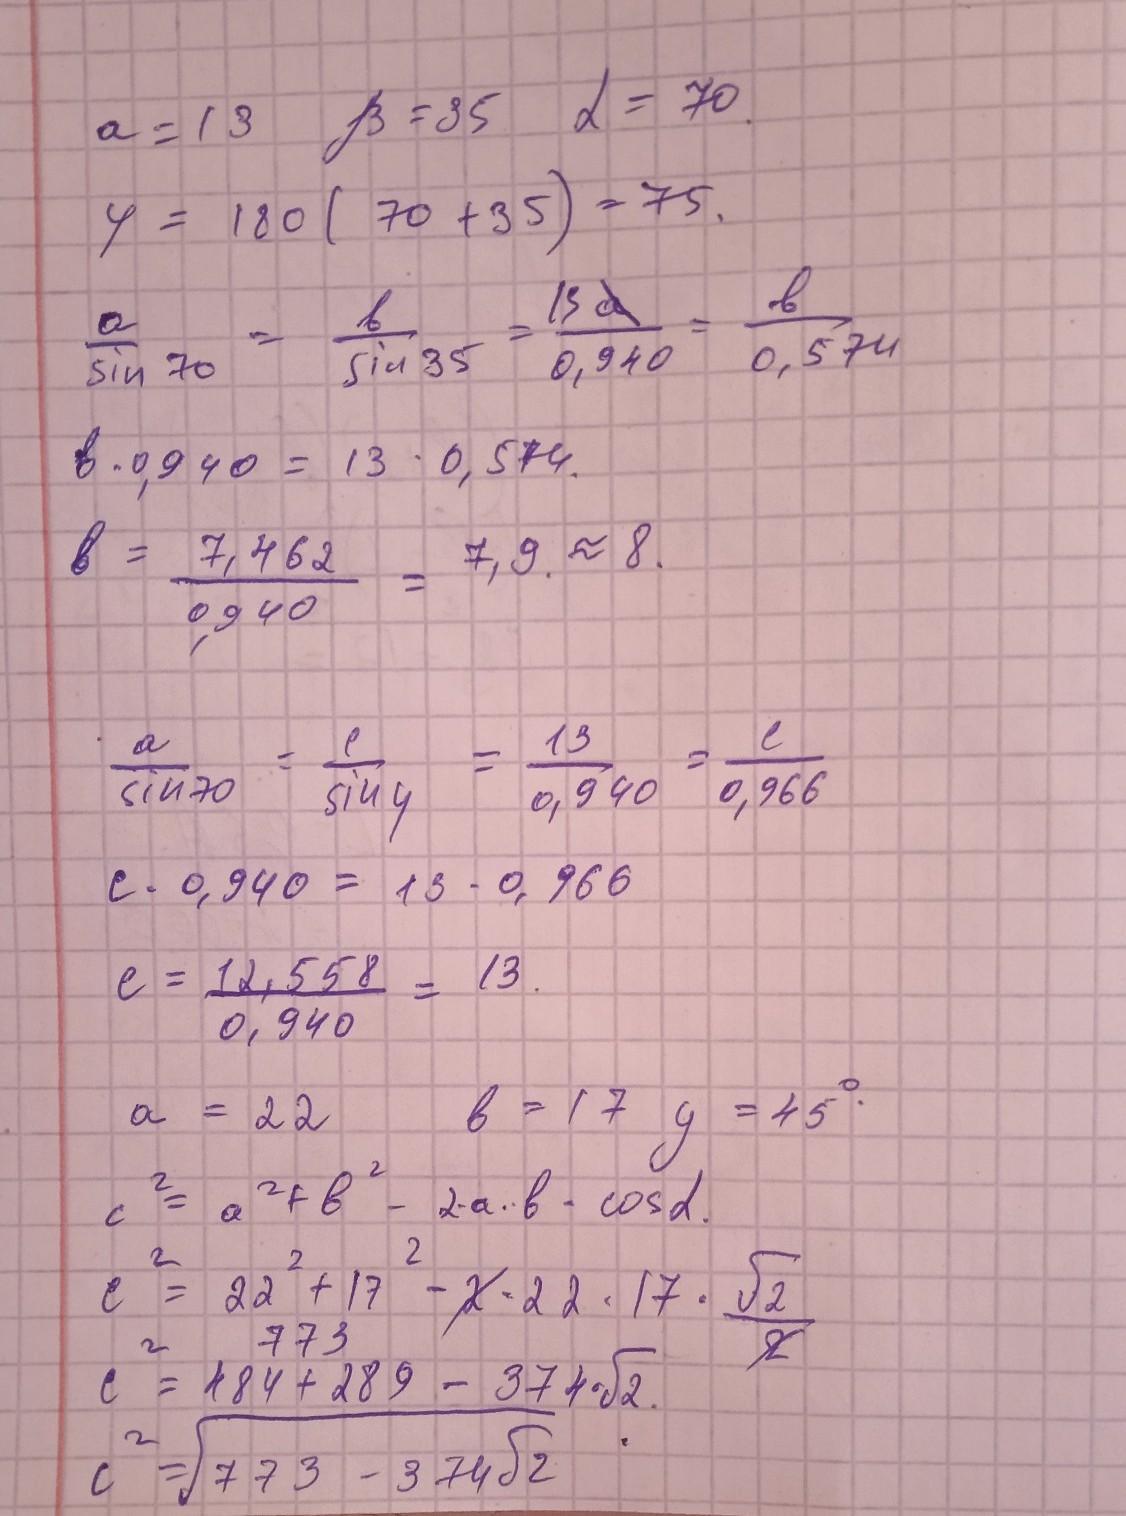 a = 13 β = 35 α = 70.
γ = 180 ( 70 + 35 ) = 75.
a/sin 70 = b/sin 35 = 13/0,940 = b/0,574
b · 0,940 = 13 · 0,574.
b = 7,462/0,940 = 7,9. ≈ 8.
a/sin 70 = c/sin γ = 13/0,940 = c/0,966
c · 0,940 = 13 · 0,966
c = 12,558/0,940 = 13.
a = 22 b = 17 γ = 45°.
c² = a² + b² - 2·a·b · cos α.
c² = 22² + 17² - 2 · 22 · 17 · √2/2
773
c² = 484 + 289 - 374·√2.
c² = √(773 - 374√2)